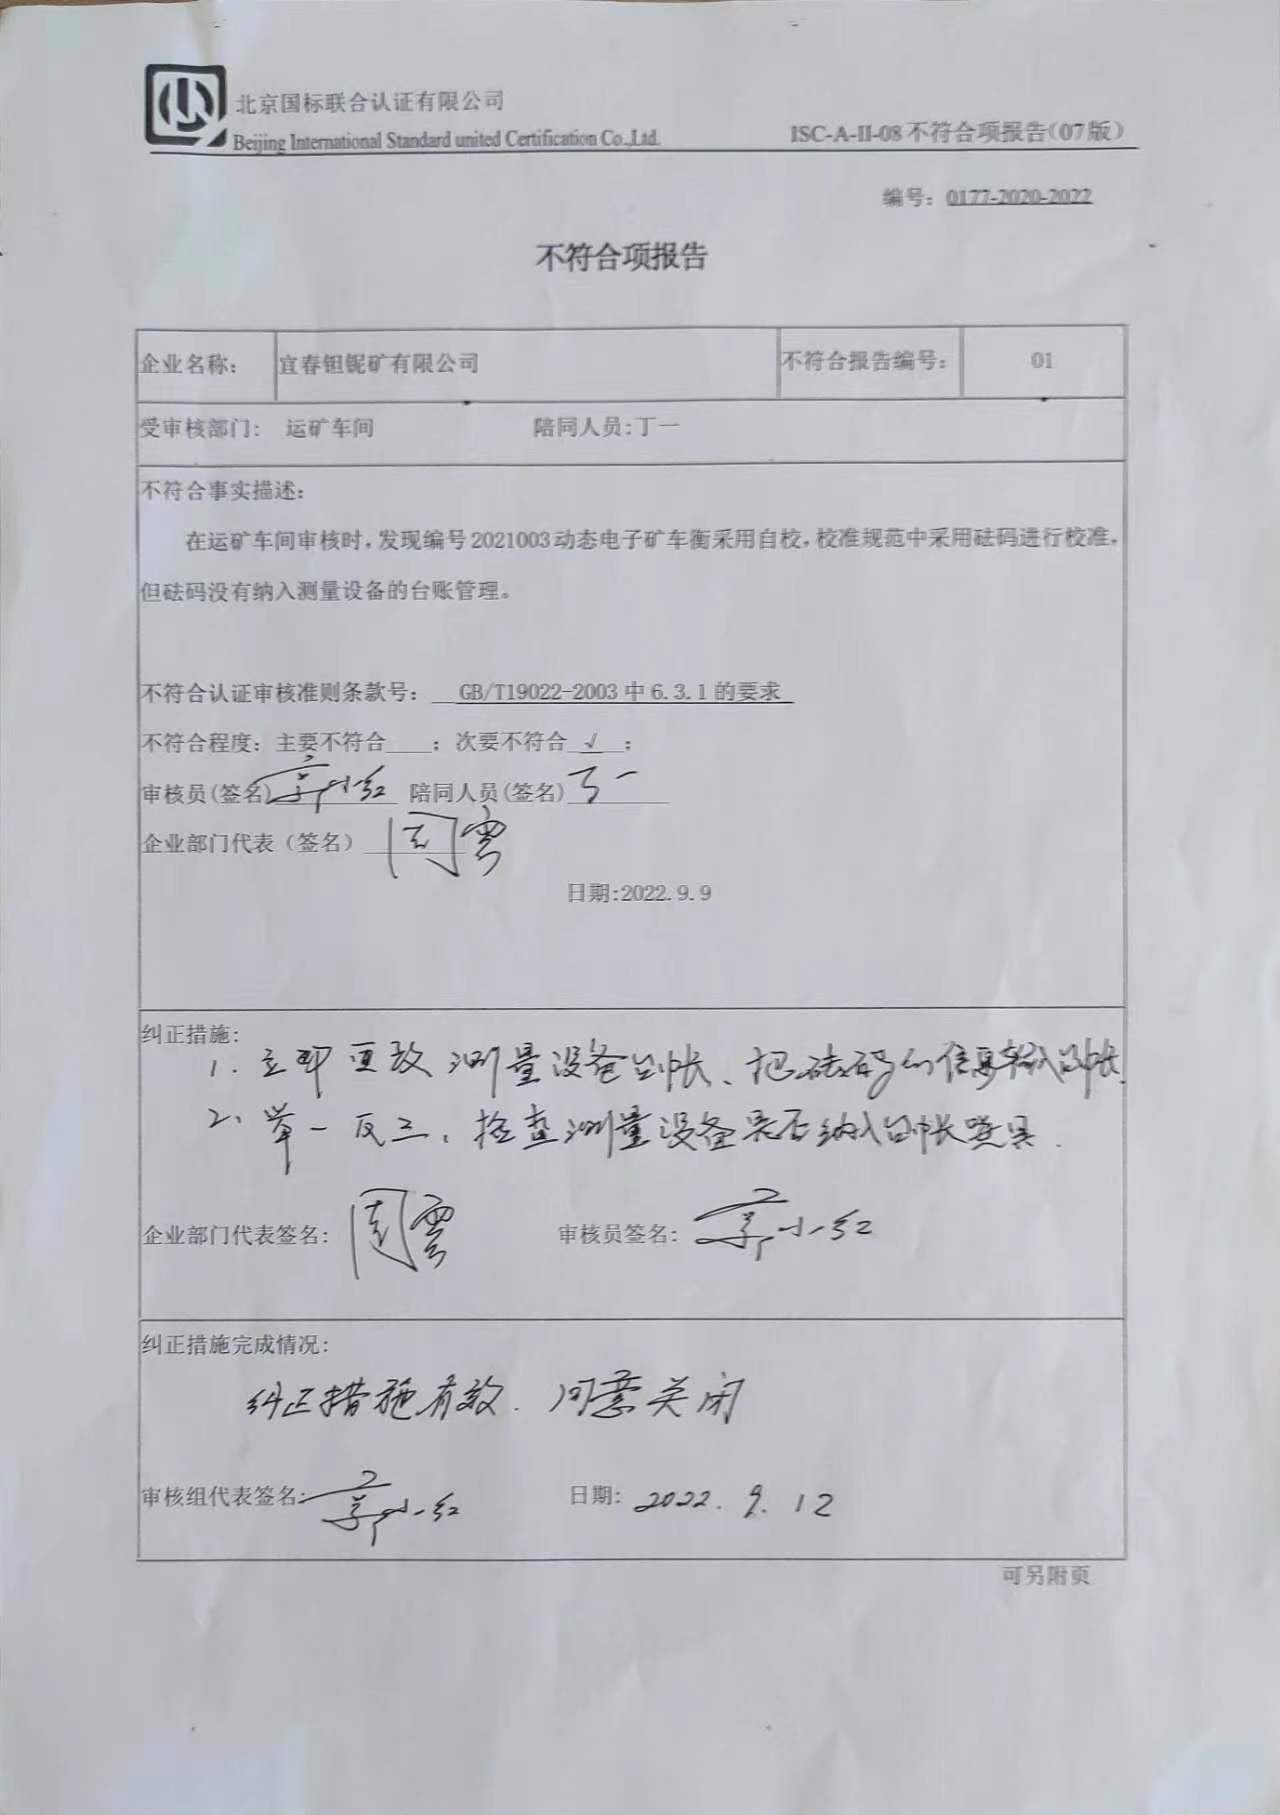 北京国标联合认证有限公司
Beijing International Standard united Certification Co.,Ltd.
ISC-A-II-08不符合项报告(07版)
编号: 0177-2020-2022
不符合项报告
企业名称: 宜春钽铌矿有限公司 不符合报告编号: 01
受审核部门: 运矿车间 陪同人员:丁一
不符合事实描述:
在运矿车间审核时,发现编号2021003动态电子矿车衡采用自校,校准规范中采用砝码进行校准,
但砝码没有纳入测量设备的台账管理。
不符合认证审核准则条款号: GB/T19022-2003中6.3.1的要求
不符合程度: 主要不符合 ; 次要不符合 √ ;
审核员(签名) 郭小红 陪同人员(签名) 丁一
企业部门代表(签名) 周雲
日期:2022.9.9
纠正措施:
1. 立即更改测量设备台帐、把砝码的信息输入台帐.
2、举一反三、检查测量设备是否纳入台帐
企业部门代表签名: 周雲 审核员签名: 郭小红
纠正措施完成情况:
纠正措施有效. 同意关闭
审核组代表签名: 郭小红 日期: 2022. 9. 12
可另附页